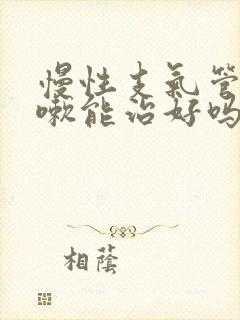 慢性支气管
嗽能治好吗
相蔭